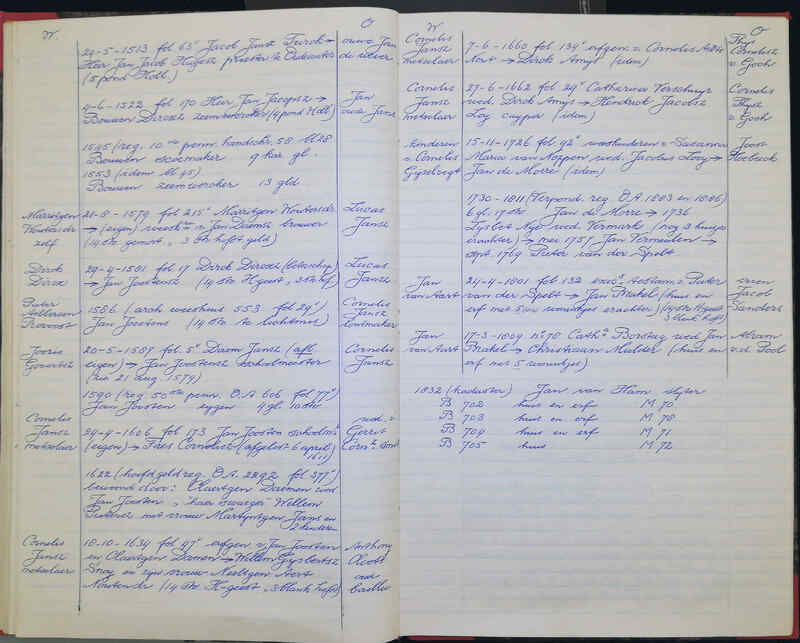 W. O
29-5-1513 fol 63v Jacob Jansz Turck →
Heer Jan Jacob Heyesz priester te Oudewater
(5 pond Holl.)
ouwe Jan
de
4-6-1522 fol 170 Heer Jan Jacopsz →
Bouwen Dircsz zeemwercker (4 pond Holl)
Jan
ouwe Jansz
1545 (reg. 10de penn. handschr. 58 bl 28
Bouwen 9 kar. gl.
1553 (idem bl 45)
Bouwen zeemwercker 13 gld.
Marritgen
Woutersdr
zelf
21-8-1579 fol 215v Marritgen Woutersdr
→ (eigen) v. Jan Daemsz brouwer
(14 str. gemot, 3 str. heft geld)
Lucas
Jansz
Dirck
Dircsz
29-4-1581 fol 17 Dirck Dircxsz
→ Jan Joostensz (14 str. H. geest, 3 str. hef)
Lucas
Jansz
Pieter
Aelbersen
Provoost
1586 (arch. weeshuis 553 fol 29v)
Jan Joostens (14 str. te Lichtmis)
Cornelis
Jansz
Jooris
Govertsz
20-5-1587 fol. 5v Daem Jansz (afl.
eigen) → Jan Joostensz schoolmeester
(zie 21 aug. 1579)
Cornelis
Jansz
1590 (reg 50ste penn. O.A. 606 fol 77v)
Jan Joosten eygen 4 gl. 10 str
Cornelis
Jansz
metselaer
24-4-1606 fol 173 Jan Joosten schoolmr
(eigen) → Fres Cornelisz (afgelost 6 april
1611)
Goud. v
Gerrit
Cornsz. smit
1622 (hoofdgeldreg. O.A. 2292 fol 377v)
bewoond door: Claertgen Daemen wed
Jan Joosten, haer swager Willem
Pietersz met vrouw Martyntgen Jans en
2 kinderen
Cornelis
Jansz
metselaer
18-10-1634 fol 47v erfgen v. Jan Joosten
en Claertgen Damen → Willem Gysbertsz
Snoy en zijn vrouw Neeltgen Aert
(14 str. H-geest, 3 blank hefs)
Anthony
Cloots
oud
bailliu
W O
Cornelis
Jansz
metselaer
7-6-1660 fol 134v erfgen. v. Cornelis
Noort → Dirck Amys (idem)
Thys
Cornelisz
v. Goch
Cornelis
Jansz
metselaer
27-6-1662 fol 29v Catharina Verschuyr
wed. Dirck Amys → Hendrick Jacobsz
Loy cuyper (idem)
Cornelis
Thysz
v. Goch
kinderen
v Cornelis
Gysbregt
15-11-1726 fol 92v voorkinderen v. Susanna
Maria van Noppen wed. Jacobus Loey →
Jan de Morre (idem)
Joost
Hoebeeck
1730-1811 (Verpond. reg. O.A. 1803 en 1806)
6 gl. 17 str Jan de Morre → 1736
Lysbet Nys wed. Vermark (nog 3 huisjes
erachter) → mei 1751 Jan Vermeulen →
sept. 1769 Pieter van der Spelt
Jan
van Aart
24-4-1801 fol 132 exec. testam. v. Pieter
van der Spelt → Jan Prakel (huis en
erf met 5 woontjes erachter) (14 str. H. geest
3 blank hefs)
erven
Jacob
Sanders
Jan
van Aart
17-3-1809 no 78 Catha Borstag wed Jan
Prakel → Christiaan Mulder (huis en
erf met 5 woontjes)
Abram
v.d. Pool
1832 (kadaster) Jan van Ham slyter
B 702 huis en erf M 70
B 703 huis en erf M 78
B 704 huis en erf M 71
B 705 huis M 72